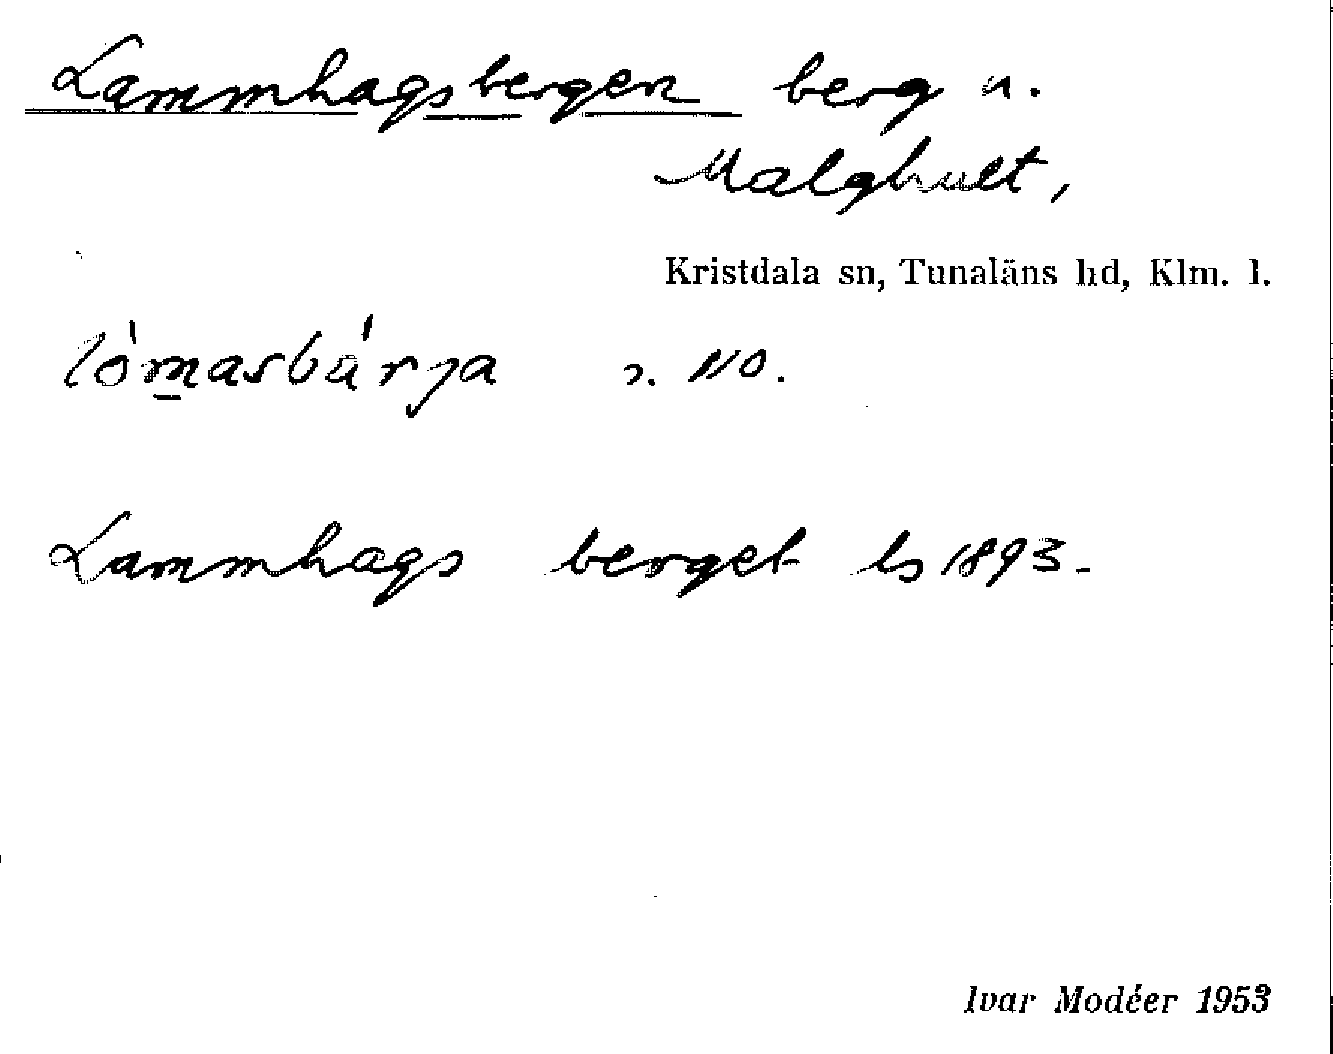 Lammhagsbergen berg u.
Malghult,
Kristdala sn, Tunaläns hd, Klm. l.
lòmasbárja 2. NO.
Lammhags berget ls 1893.
Ivar Modéer 1953